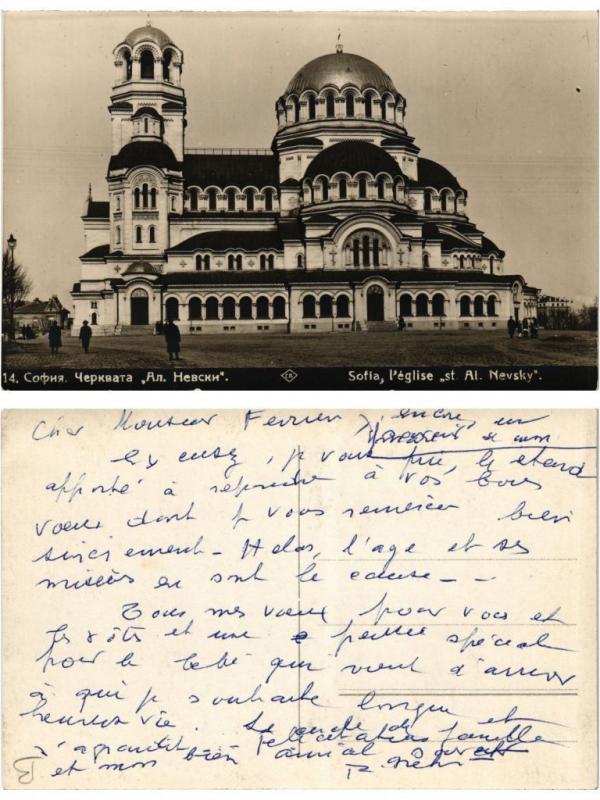 14. София. Черквата „Ал. Невски".
Sofia, l'église „st. Al. Nevsky".
Cher Monsieur Ferrier
encore un
Excusez, je vous prie, le retard
apporté à répondre à vos bons
voeux dont je vous remercie bien
sincèrement - Hélas, l'age et ses
misères en sont la cause - -
Tous mes voeux pour vous et
les vôtres et une pensée spéciale
pour le bébé qui vient d'arriver
à qui je souhaite longue et
heureuse vie.
félicitations famille
s'agrandit
et mon bien amical souvenir